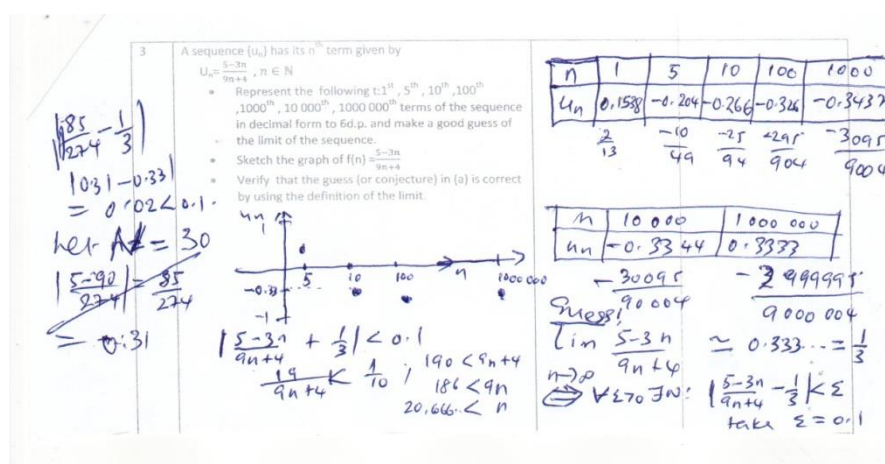 3
A sequence (uₙ) has its nᵗʰ term given by
Uₙ= (5-3n)/(9n+4) , n ∈ N
• Represent the following t:1ˢᵗ , 5ᵗʰ , 10ᵗʰ ,100ᵗʰ
,1000ᵗʰ , 10 000ᵗʰ , 1000 000ᵗʰ terms of the sequence
in decimal form to 6d.p. and make a good guess of
the limit of the sequence.
• Sketch the graph of f(n) = (5-3n)/(9n+4)
• Verify that the guess (or conjecture) in (a) is correct
by using the definition of the limit.
|85/274 - 1/3|
|0.31 - 0.33|
= 0.02 < 0.1.
= 30
|5-90/274| = 85/274
= 0.31
uₙ
1
5 10 100 n 1000 000
-0.3
-1
|(5-3n)/(9n+4) + 1/3| < 0.1
19/(9n+4) < 1/10 ; 190 < 9n+4
186 < 9n
20.666.. < n
n 1 5 10 100 1000
uₙ 0.1538 -0.204 -0.266 -0.326
2/13 -10/49 -25/94 -295/904 -3095/9004
n 10 000 1 000 000
uₙ -0.3344 0.3333
-30095/90004 -2999995/9000004
Guess!
lim n→∞ (5-3n)/(9n+4) ≃ 0.333... = 1/3
⇔ ∀ε>0 ∃N: |(5-3n)/(9n+4) - 1/3| < ε
take ε = 0.1